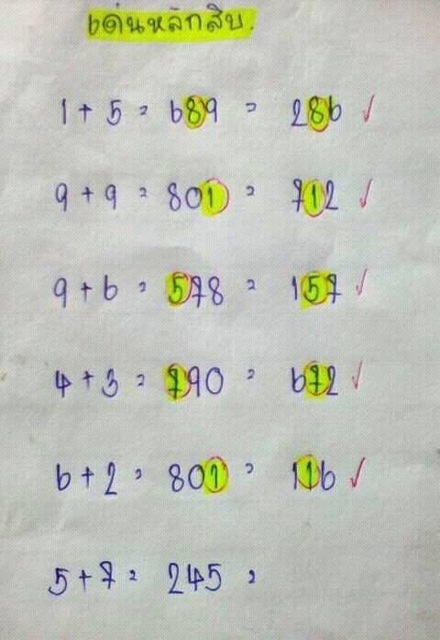 เด่นหลักสิบ.
1 + 5 = 689 = 286 ✓
9 + 9 = 801 = 712 ✓
9 + 6 = 578 = 157 ✓
4 + 3 = 790 = 672 ✓
6 + 2 = 801 = 116 ✓
5 + 7 = 245 =